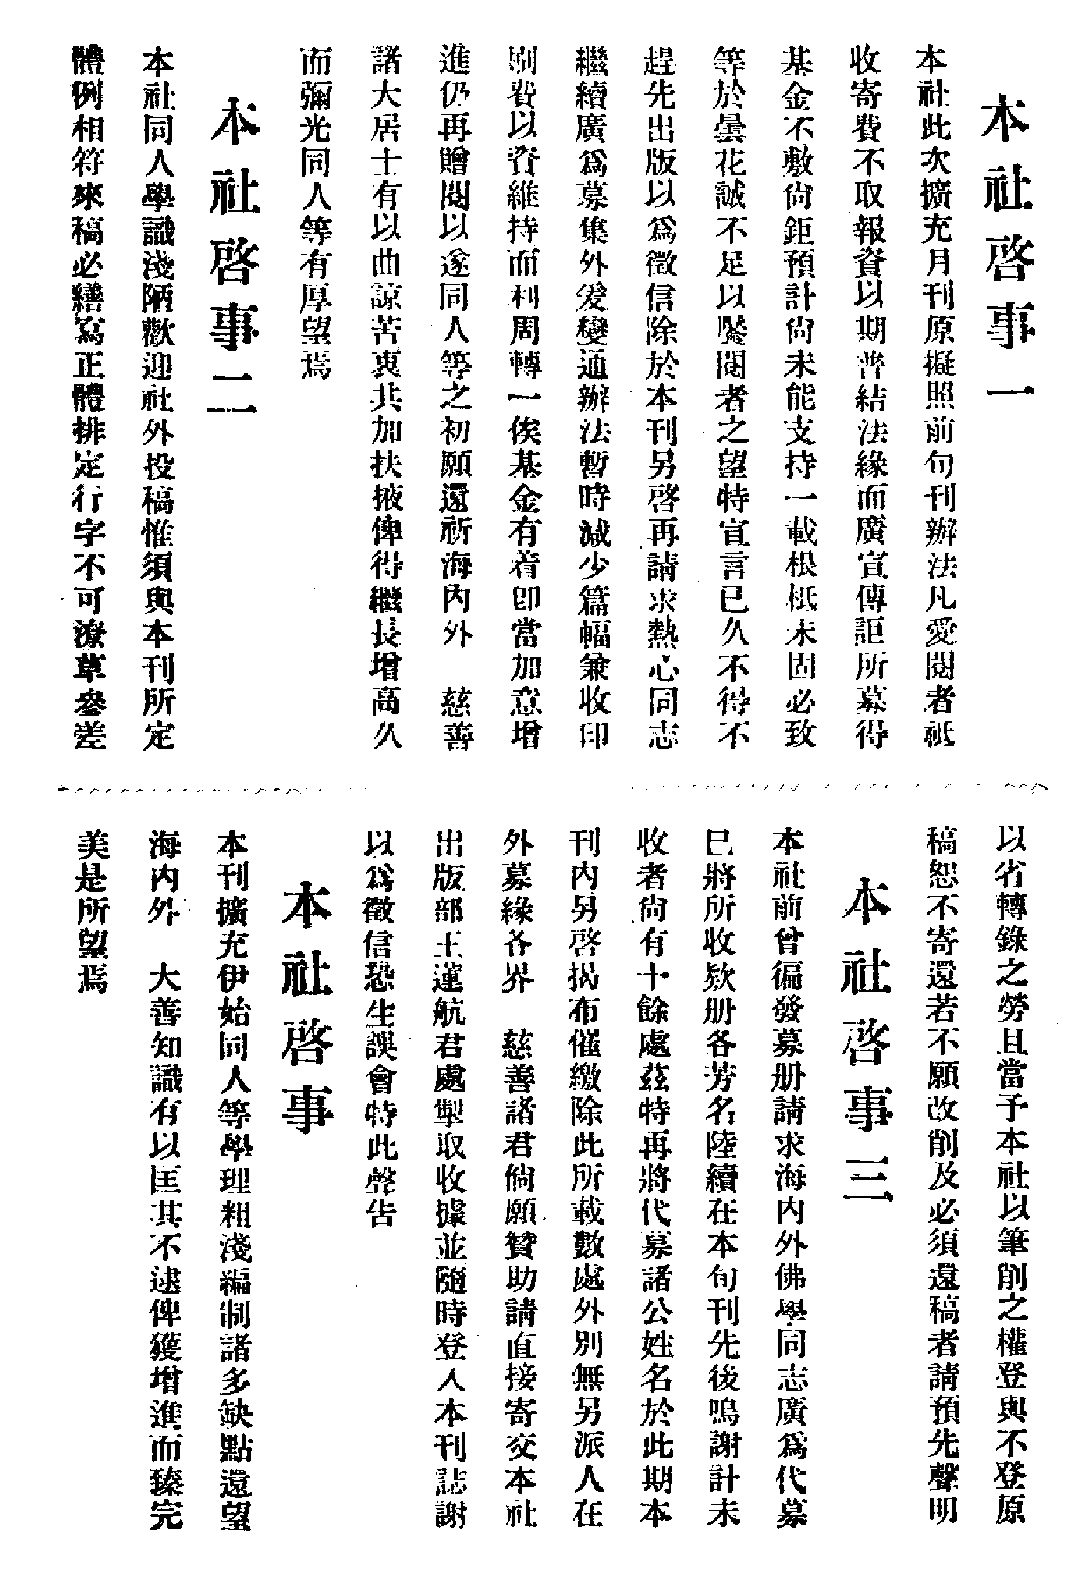 本社啓事一
本社此次擴充月刊原擬照前旬刊辦法凡愛閱者祇
收寄費不取報資以期普結法緣而廣宣傳詎所募得
基金不敷尙鉅預計尙未能支持一載根柢未固必致
等於曇花誠不足以饜閱者之望特宣言已久不得不
趕先出版以爲徵信除於本刊另啓再請求熱心同志
繼續廣爲募集外爰變通辦法暫時减少篇幅兼收印
刷費以資維持而利周轉一俟基金有着卽當加意增
進仍再贈閱以遂同人等之初願還祈海內外　慈善
諸大居士有以曲諒苦衷共加扶掖俾得繼長增高久
而彌光同人等有厚望焉
本社啓事二
本社同人學識淺陋歡迎社外投稿惟須與本刊所定
體例相符來稿必繕寫正體排定行字不可潦草參差
以省轉錄之勞且當予本社以筆削之權登與不登原
稿恕不寄還若不願改削及必須還稿者請預先聲明
本社啓事三
本社前曾徧發募册請求海內外佛學同志廣爲代募
已將所收欵册各芳名陸續在本旬刊先後鳴謝計未
收者尙有十餘處茲特再將代募諸公姓名於此期本
刊內另啓揭布催繳除此所載數處外別無另派人在
外募緣各界　慈善諸君倘願贊助請直接寄交本社
出版部王蓮航君處掣取收據並隨時登入本刊誌謝
以爲徵信恐生誤會特此聲告
本社啓事
本刊擴充伊始同人等學理粗淺編制諸多缺點還望
海內外　大善知識有以匡其不逮俾獲增進而臻完
美是所望焉